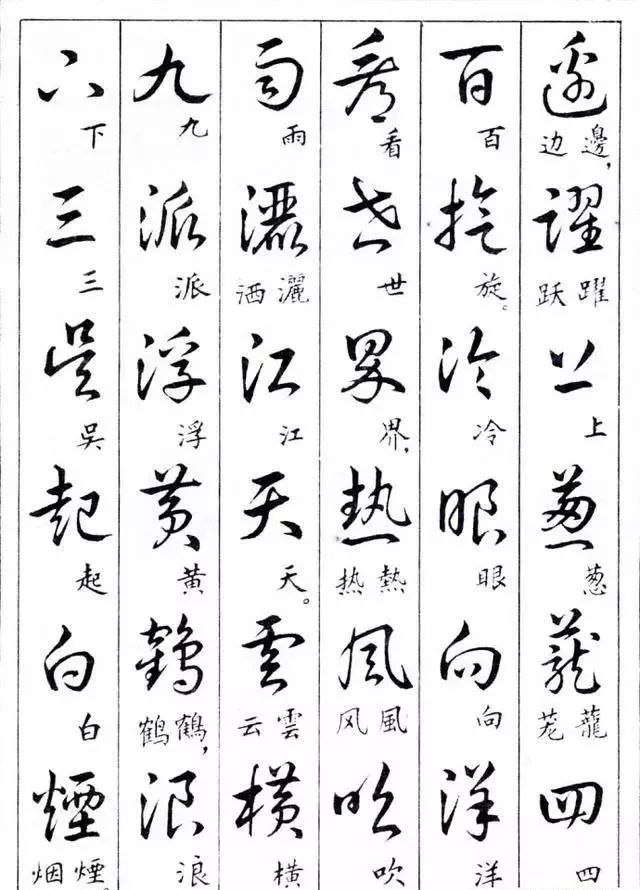 邊躍上葱蘢四
边邊，跃躍上葱茏蘢四
百旋冷眼向洋
百旋。冷眼向洋
看世界熱風吹
看世界，热熱风風吹
雨灑江天雲橫
雨洒灑江天。云雲橫
九派浮黄鶴浪
九派浮黄鹤鶴，浪
下三吴起白煙
下三吴起白烟煙。